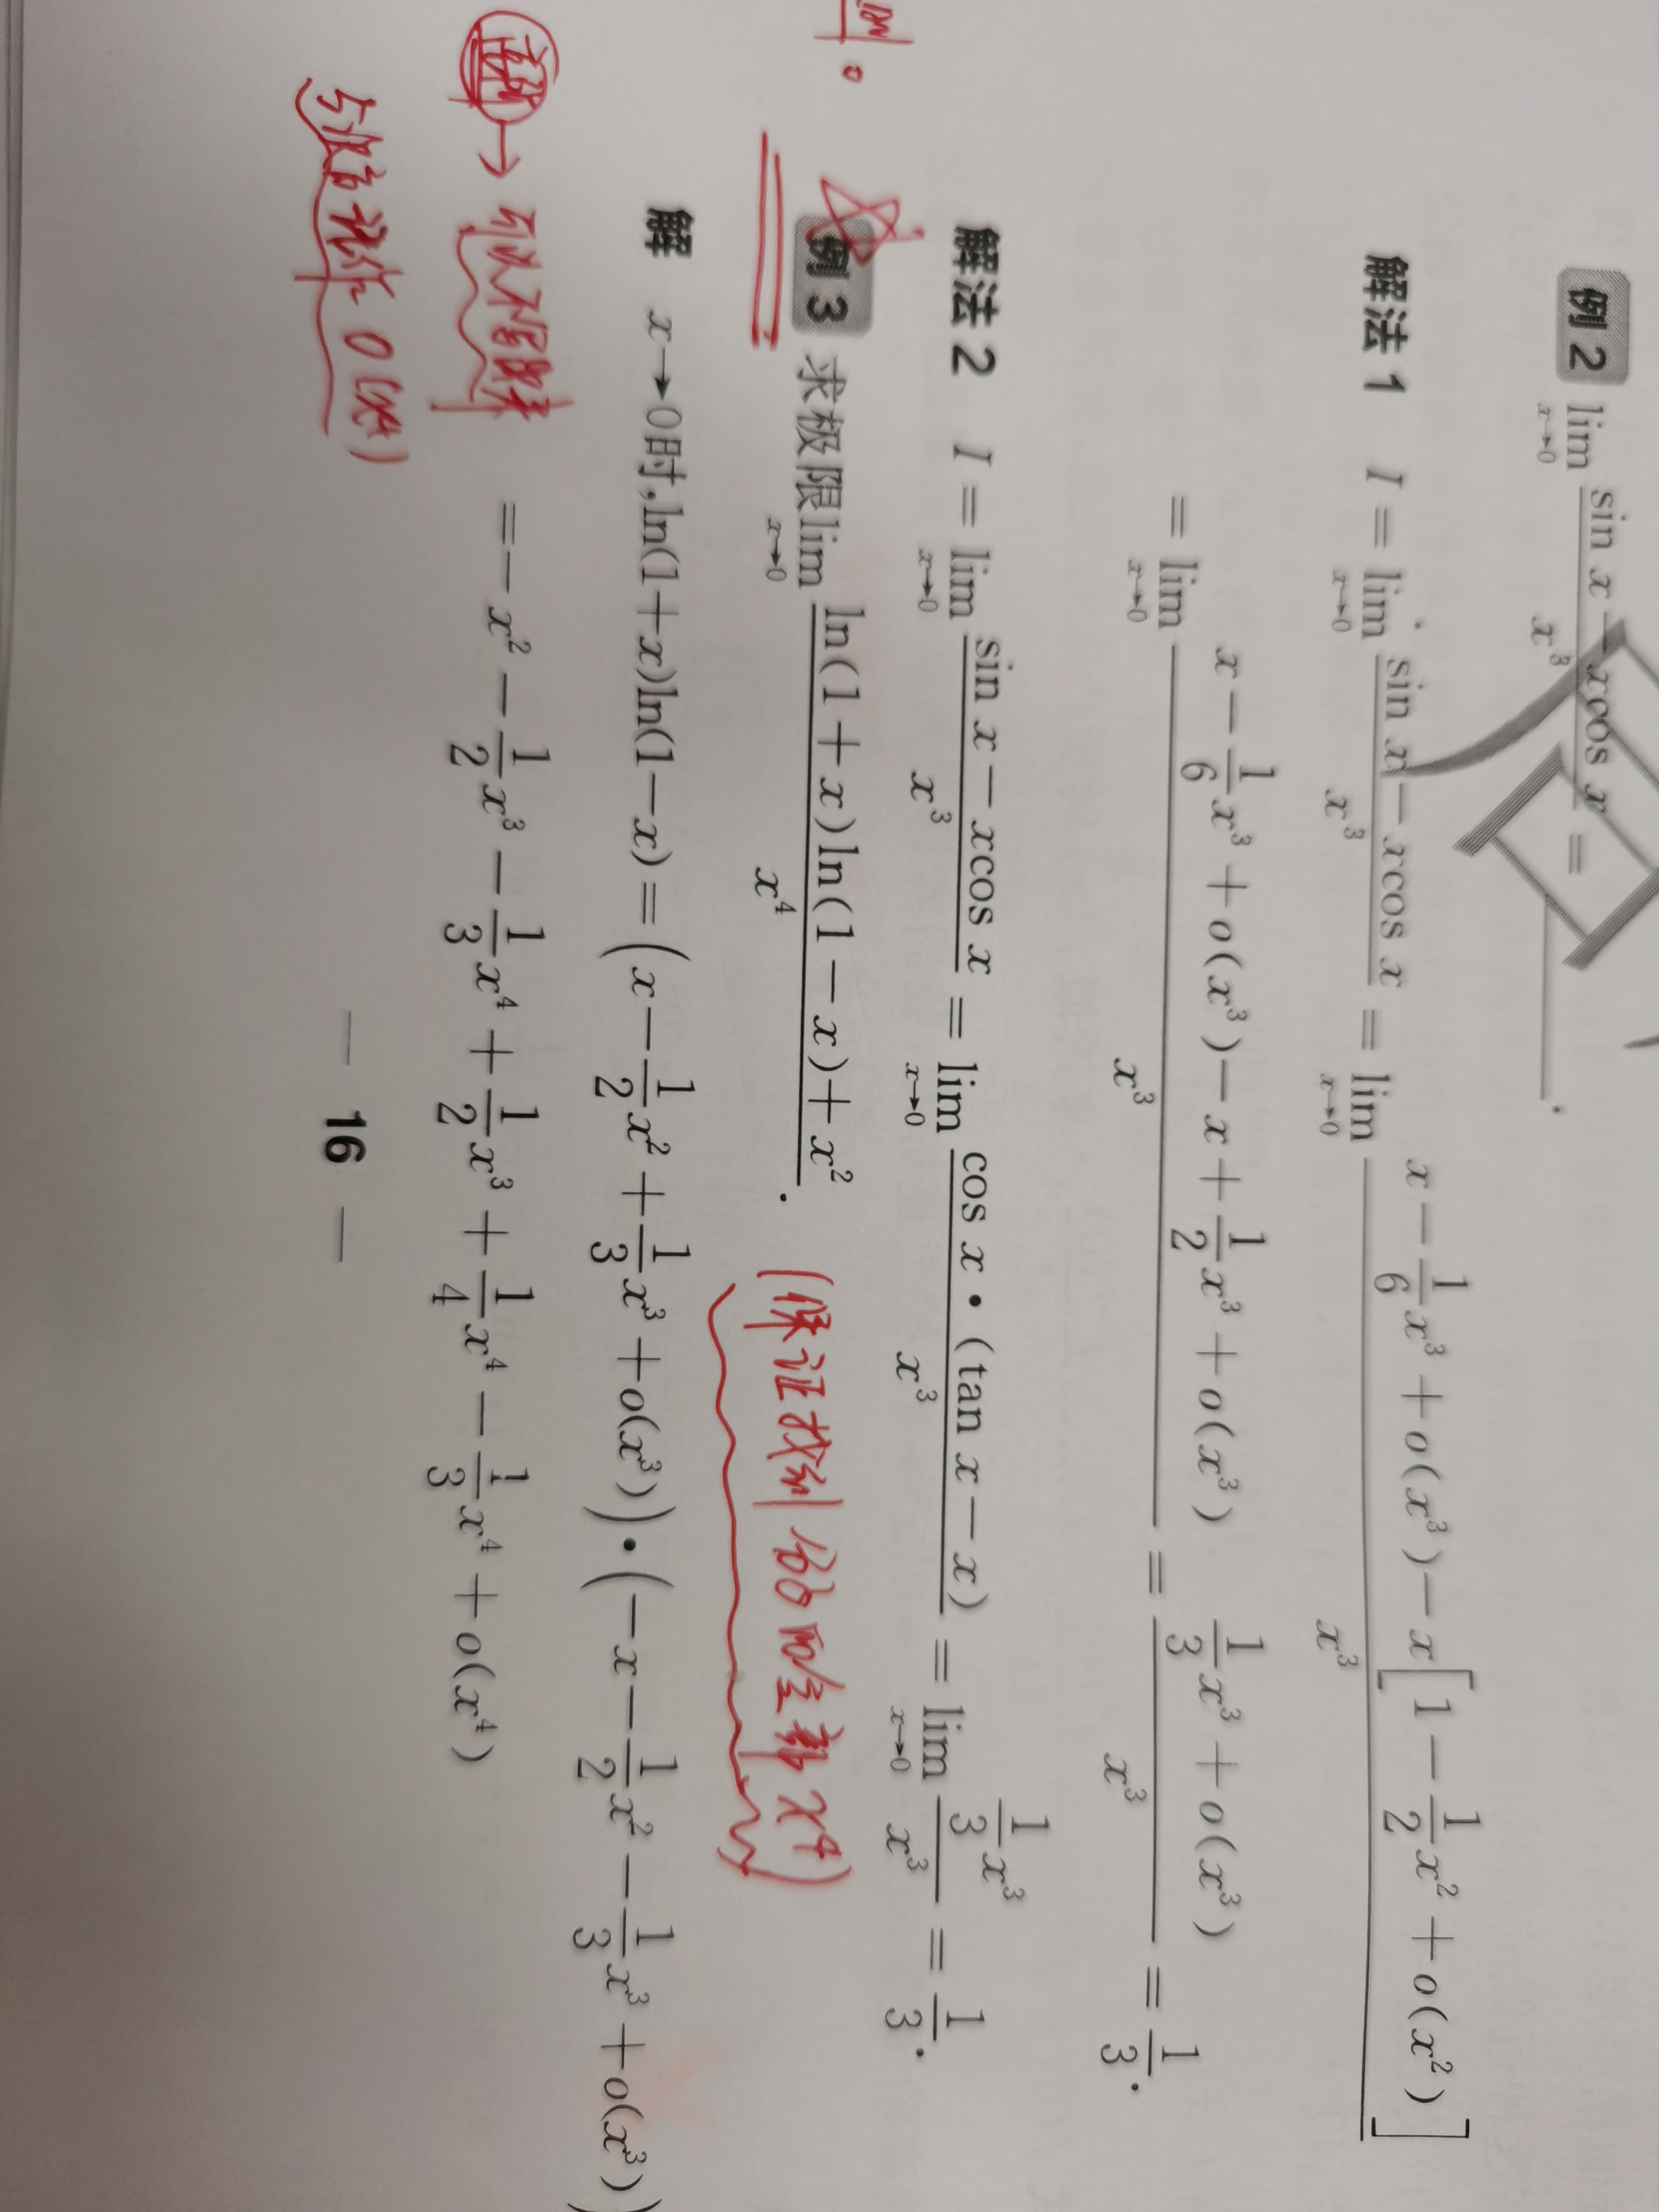 例2 lim_{x→0} (sin x − xcos x)/x³ = ______.
解法1 I = lim_{x→0} (sin x − xcos x)/x³ = lim_{x→0} (x − 1/6 x³ + o(x³) − x[1 − 1/2 x² + o(x²)])/x³
= lim_{x→0} (x − 1/6 x³ + o(x³) − x + 1/2 x³ + o(x³))/x³ = (1/3 x³ + o(x³))/x³ = 1/3.
解法2 I = lim_{x→0} (sin x − xcos x)/x³ = lim_{x→0} (cos x • (tan x − x))/x³ = lim_{x→0} (1/3 x³)/x³ = 1/3.
例3 求极限 lim_{x→0} (ln(1 + x)ln(1 − x) + x²)/x⁴. (保证找到 的 x⁴)
解 x→0时,ln(1+x)ln(1−x) = (x − 1/2 x² + 1/3 x³ + o(x³)) • (−x − 1/2 x² − 1/3 x³ + o(x³))
→ 可以不写出来
= − x² − 1/2 x³ − 1/3 x⁴ + 1/2 x³ + 1/4 x⁴ − 1/3 x⁴ + o(x⁴)
o(x⁴)
— 16 —